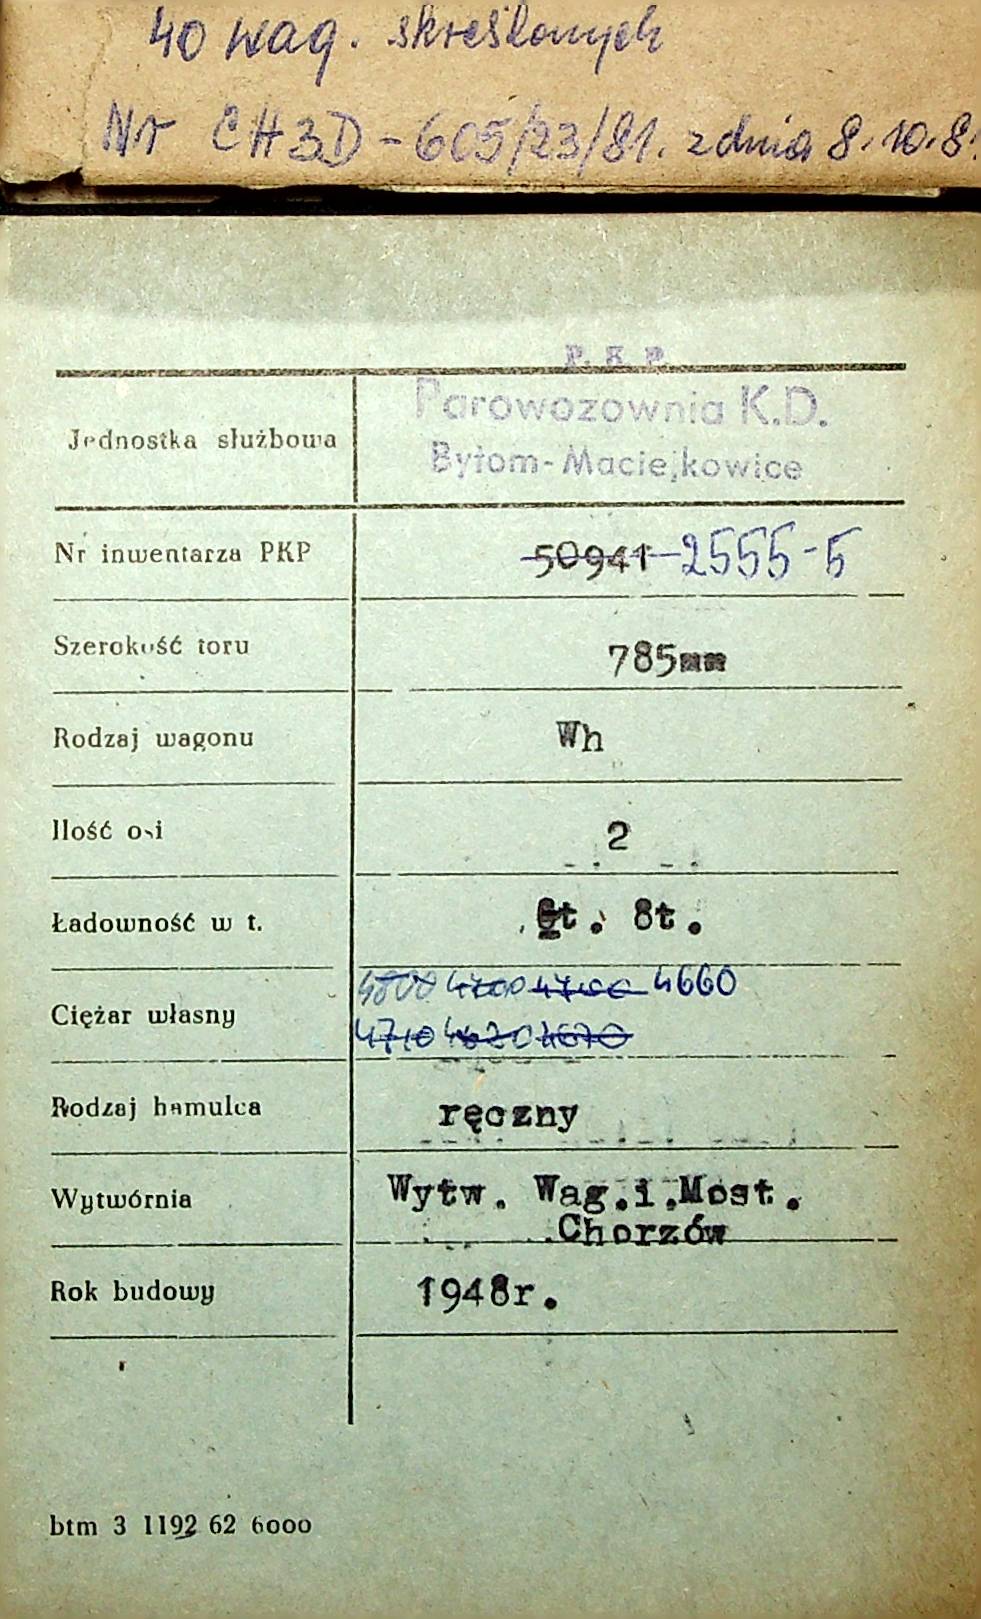 40 wag. skreślonych
Nr CH3D-605/23/81. z dnia 8.10.8
P. K. P.
Parowozownia K.D.
Bytom-Maciejkowice
Jednostka służbowa
Nr inwentarza PKP 50941 2555-5
Szerokość toru 785mm
Rodzaj wagonu Wh
Ilość osi 2
Ładowność w t. 6t. 8t.
4800 4700 4700 4660
Ciężar własny
4710 4620 4670
Rodzaj hamulca ręczny
Wytwórnia Wytw. Wag.i.Most.
Chorzów
Rok budowy 1948r.
btm 3 1192 62 6000